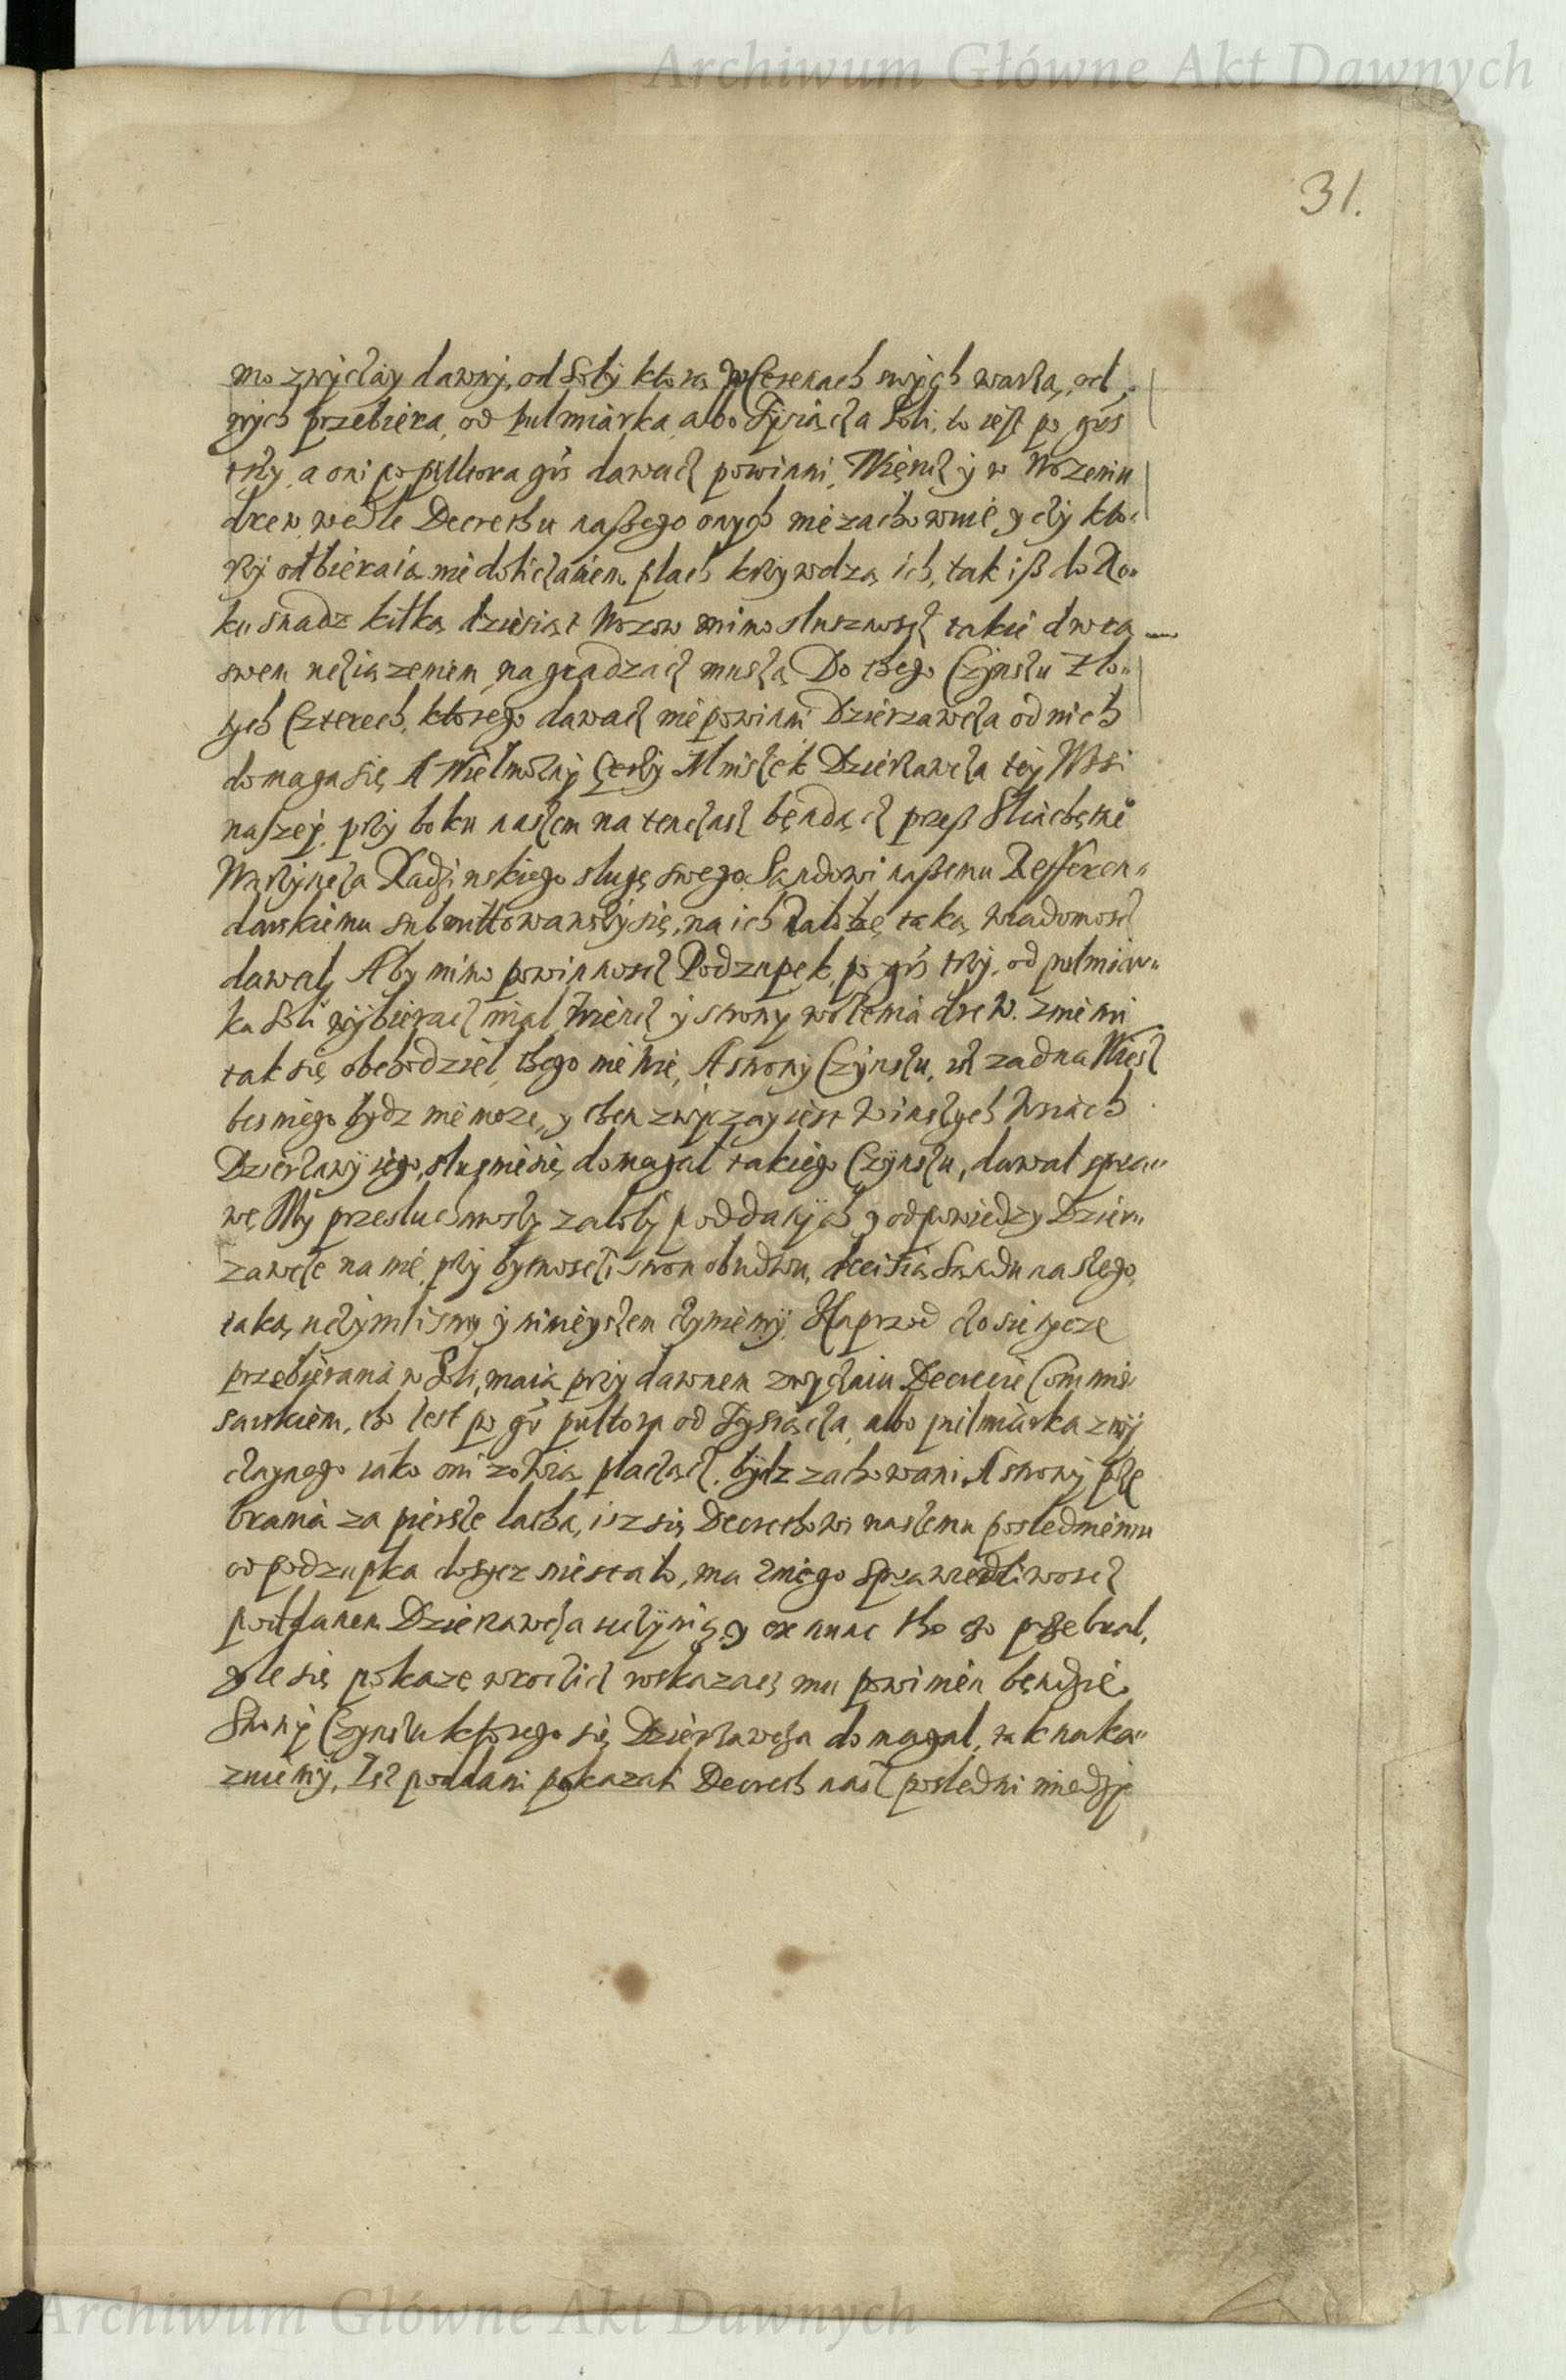 Archiwum Główne Akt Dawnych
31.
mo zwyczay dawny, od Soly ktorą w Cerenach swych warzą, od
nych przebiera, od pulmiarka albo Tysiącza Soli, to iest po grs
trzy, a oni po pułtora grs dawacz powinni, Więncz y w Wozeniu
drew, wedle Decrethu naszego onych nie zachowuie, gdy kto-
rzy odbieraią niedoliczaniem płach krzywdzą ich, tak isz do Ro-
ku snadz kilką dziesiąt Wozow mimo słusznoscz takie drwa
swem uciązeniem nagradzacz muszą Do thego Czynszu zło-
tych Czterech, ktorego dawacz nie powinni Dzierzawcza od nich
domaga się A Wielmozny Mniszek Dzierzawcza tey Wsi
naszey, przy boku naszem na tenczasz bęndącz przesz Sliachetnie
Radzinskiego slugę swego Sąndowi naszemu Refferen-
darskiemu submittowawszy się, na ich załobę taką wiadomoscz
dawał, Aby mimo powinnoscz Podzupek, po grs trzy, od pulmiar-
ka Soli wybieracz miał Wiencz y strony wozenia drew. z niemi
tak się obchodziel, thego nie wie, A strony Czynszu, isz zadna Wiesz
bes niego bydz nie moze, y then zwyczay iest w inszych Wsiach
Dzierzawy iego, słusznie się domagał takiego Czynszu, dawał spra-
wę My przesłuchawszy załoby poddanych y odpowiedzy Dzier-
zawcze na nie, przy bytnosczi stron obudwu, decisią Sąndu naszego,
taką uczynilismy y ninieyszem czyniemy. Naprzod czo się tycze
przebierania w Soli, maią przy dawnem zwyczaiu Decrecie Commis-
sarskiem, tho iest po gr pułtora od Tysiącza, albo pulmiarka zwy
czaynego iako oni zowią płaczącz, bydz zachowani, A strony prze
brania za pierwsze latha, isz się Decrethowi naszemu posledniemu
od podzupka dosycz niestało, ma z niego sprawiedliwoscz
poddanem Dzierzawcza uczynicz y ex nunc tho czo przebrał,
yle się pokaze wroczicz wskazacz mu powinien bęndzie
Strony Czynszu ktorego się Dzierzawcza domagał, tak naka-
zuiemy, Isz poddani pokazali Decreth nasz posledni miedzy
Archiwum Główne Akt Dawnych